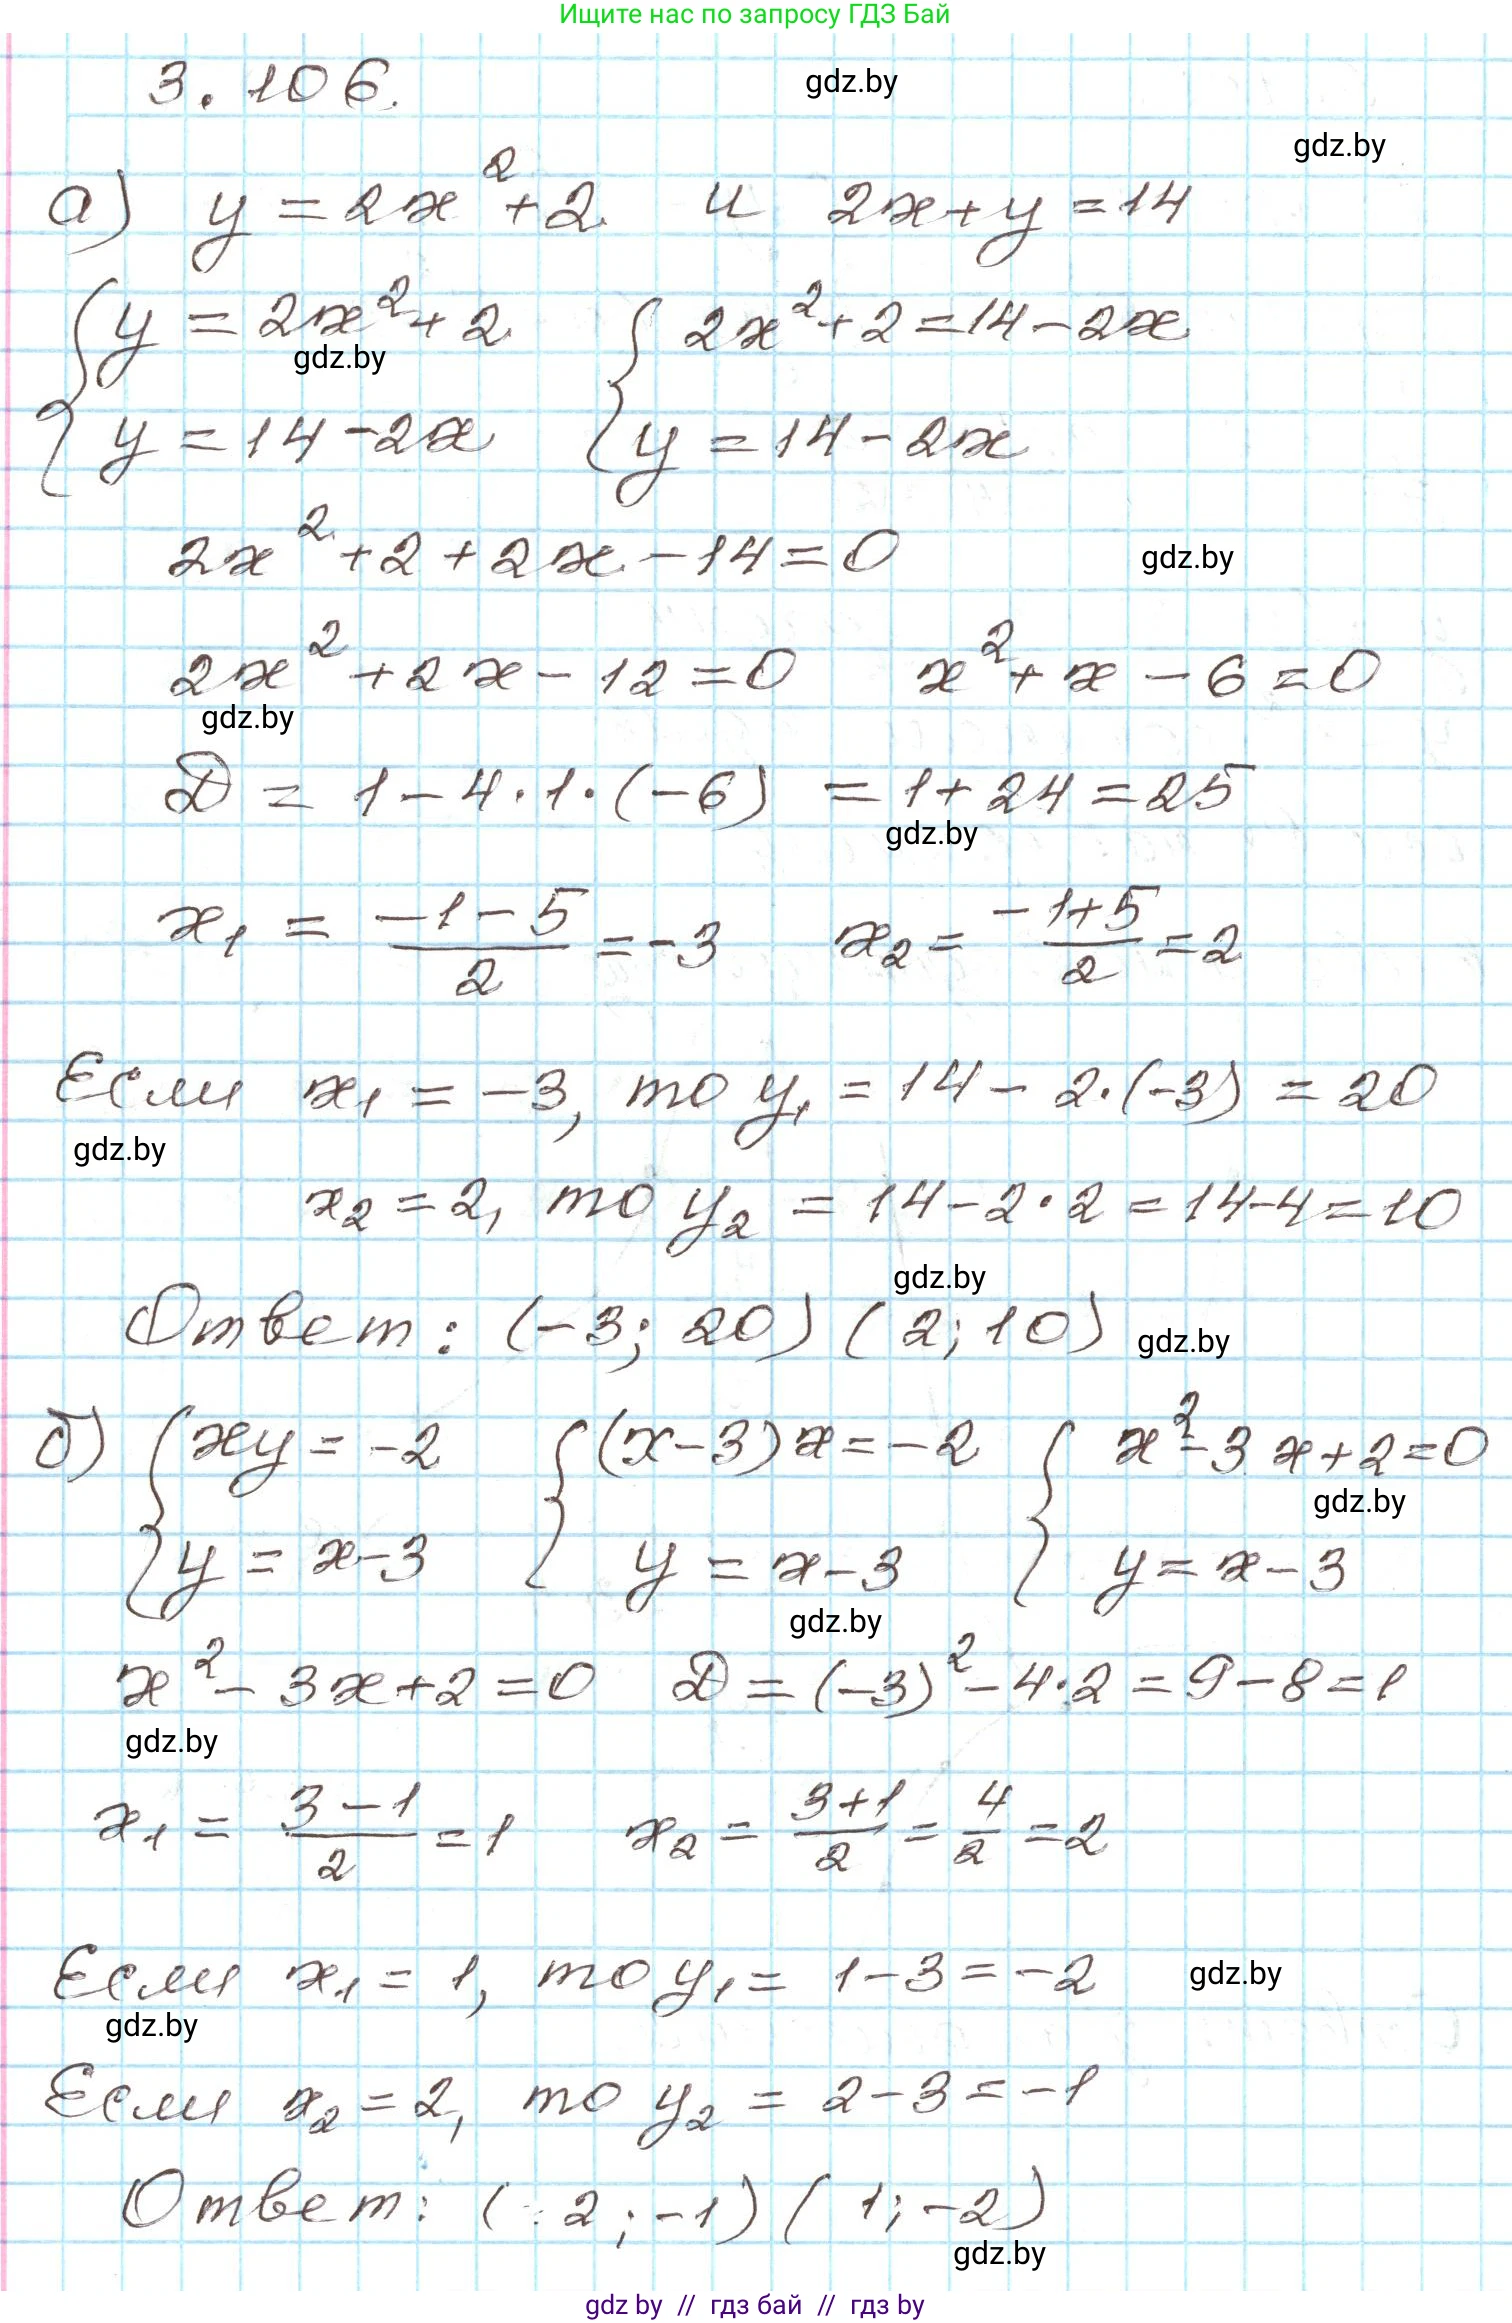 Ищите нас по запросу ГДЗ Бай
3.106.
gdz.by
gdz.by
а) y = 2x² + 2 и 2x + y = 14
{ y = 2x² + 2 { 2x² + 2 = 14 - 2x
gdz.by
y = 14 - 2x y = 14 - 2x
2x² + 2 + 2x - 14 = 0
gdz.by
2x² + 2x - 12 = 0 x² + x - 6 = 0
gdz.by
D = 1 - 4 · 1 · (-6) = 1 + 24 = 25
gdz.by
x₁ = (-1 - 5)/2 = -3 x₂ = (-1 + 5)/2 = 2
Если x₁ = -3, то y₁ = 14 - 2 · (-3) = 20
gdz.by
x₂ = 2, то y₂ = 14 - 2 · 2 = 14 - 4 = 10
gdz.by
Ответ: (-3; 20) (2; 10)
gdz.by
б) { xy = -2 { (x - 3)x = -2 { x² - 3x + 2 = 0
gdz.by
y = x - 3 y = x - 3 y = x - 3
gdz.by
x² - 3x + 2 = 0 D = (-3)² - 4 · 2 = 9 - 8 = 1
gdz.by
x₁ = (3 - 1)/2 = 1 x₂ = (3 + 1)/2 = 4/2 = 2
Если x₁ = 1, то y₁ = 1 - 3 = -2
gdz.by
gdz.by
Если x₂ = 2, то y₂ = 2 - 3 = -1
Ответ: (2; -1) (1; -2)
gdz.by
gdz by // гдз бай // гдз by